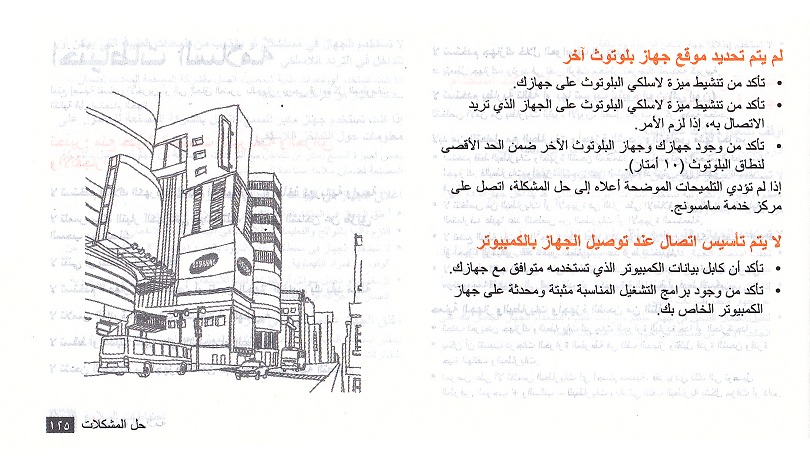 لم يتم تحديد موقع جهاز بلوتوث آخر
• تأكد من تنشيط ميزة لاسلكي البلوتوث على جهازك.
• تأكد من تنشيط ميزة لاسلكي البلوتوث على الجهاز الذي تريد
الاتصال به، إذا لزم الأمر.
• تأكد من وجود جهازك وجهاز البلوتوث الآخر ضمن الحد الأقصى
لنطاق البلوتوث (١٠ أمتار).
إذا لم تؤدي التلميحات الموضحة أعلاه إلى حل المشكلة، اتصل على
مركز خدمة سامسونج.
لا يتم تأسيس اتصال عند توصيل الجهاز بالكمبيوتر
• تأكد أن كابل بيانات الكمبيوتر الذي تستخدمه متوافق مع جهازك.
• تأكد من وجود برامج التشغيل المناسبة مثبتة ومحدثة على جهاز
الكمبيوتر الخاص بك.
حل المشكلات ١٢٥